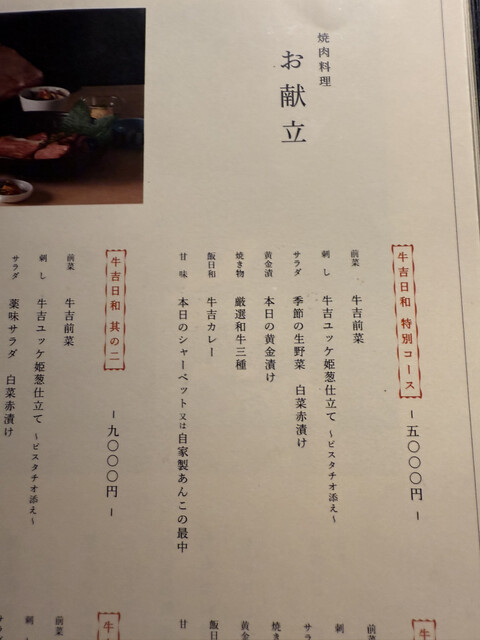 焼肉料理
お献立
牛吉日和 特別コース
-五〇〇〇円-
前菜 牛吉前菜
刺し 牛吉ユッケ姫葱仕立て ~ピスタチオ添え~
サラダ 季節の生野菜 白菜赤漬け
黄金漬 本日の黄金漬け
焼き物 厳選和牛三種
飯日和 牛吉カレー
甘味 本日のシャーベット又は自家製あんこの最中
牛吉日和 其の二
-九〇〇〇円-
前菜 牛吉前菜
刺し 牛吉ユッケ姫葱仕立て ~ピスタチオ添え~
サラダ 薬味サラダ 白菜赤漬け
牛
前菜
刺
サラ
黄金
焼き
飯日
甘
牛
前菜
刺し